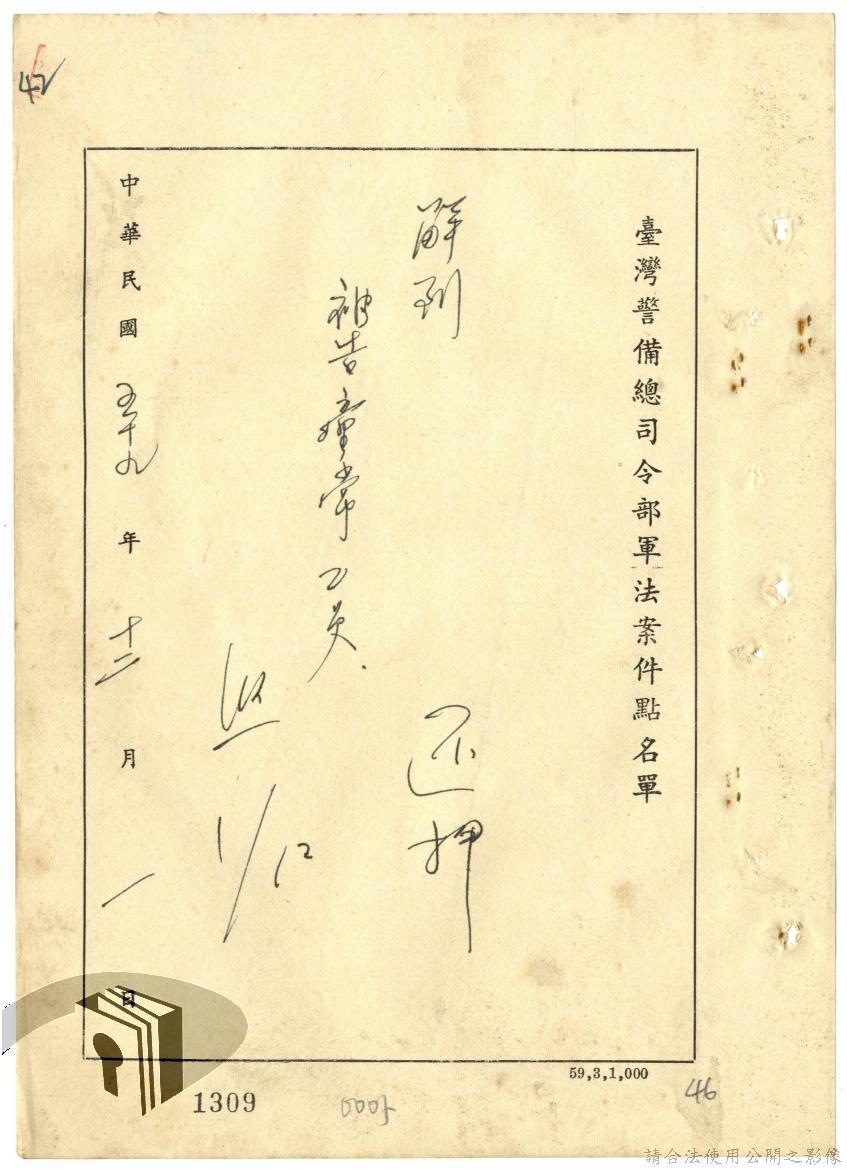 臺灣警備總司令部軍法案件點名單
解到
還押
被告童常乙員.
1/12
中華民國五十九年十二月一日
59,3,1,000
42
46
1309
請合法使用公開之影像